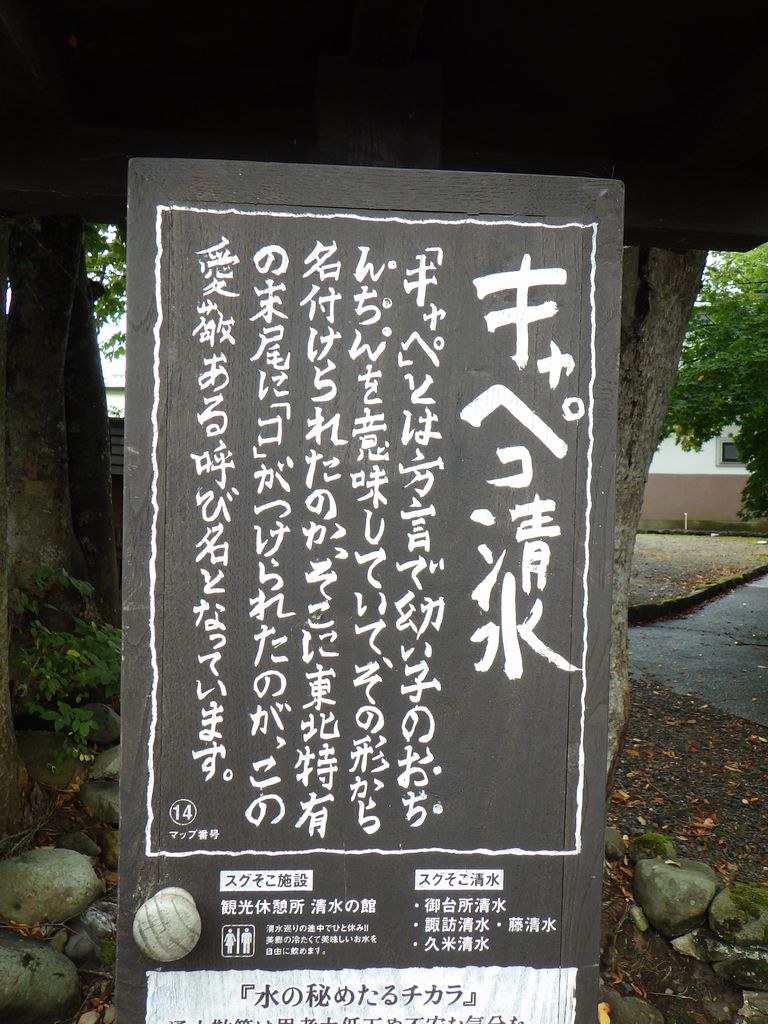 キャペコ清水
「キャペ」とは方言で幼い子のおち
んちんを意味していて、その形から
名付けられたのか、そこに東北特有
の末尾に「コ」がつけられたのが、この
愛敬ある呼び名となっています。
14
マップ番号
スグそこ施設
観光休憩所 清水の館
清水巡りの途中でひと休み!!
美郷の冷たくて美味しいお水を
自由に飲めます。
スグそこ清水
・御台所清水
・諏訪清水・藤清水
・久米清水
『水の秘めたるチカラ』